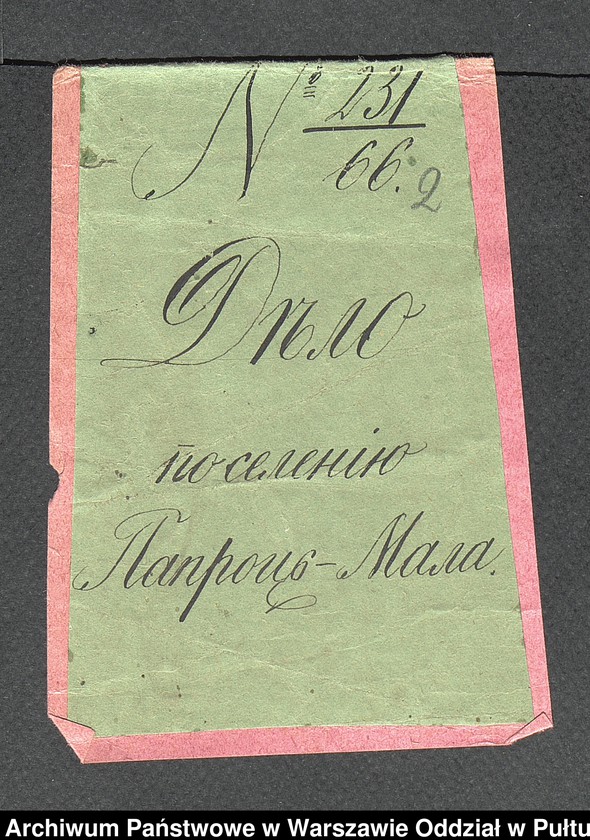 № 231
66. 2
Дѣло
поселенію
Папроць-Мала.
Archiwum Państwowe w Warszawie Oddział w Pułtu